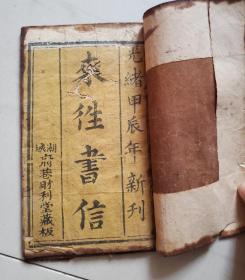 光緒甲辰年新刊
來往書信
湖城
六前巷財利堂藏板